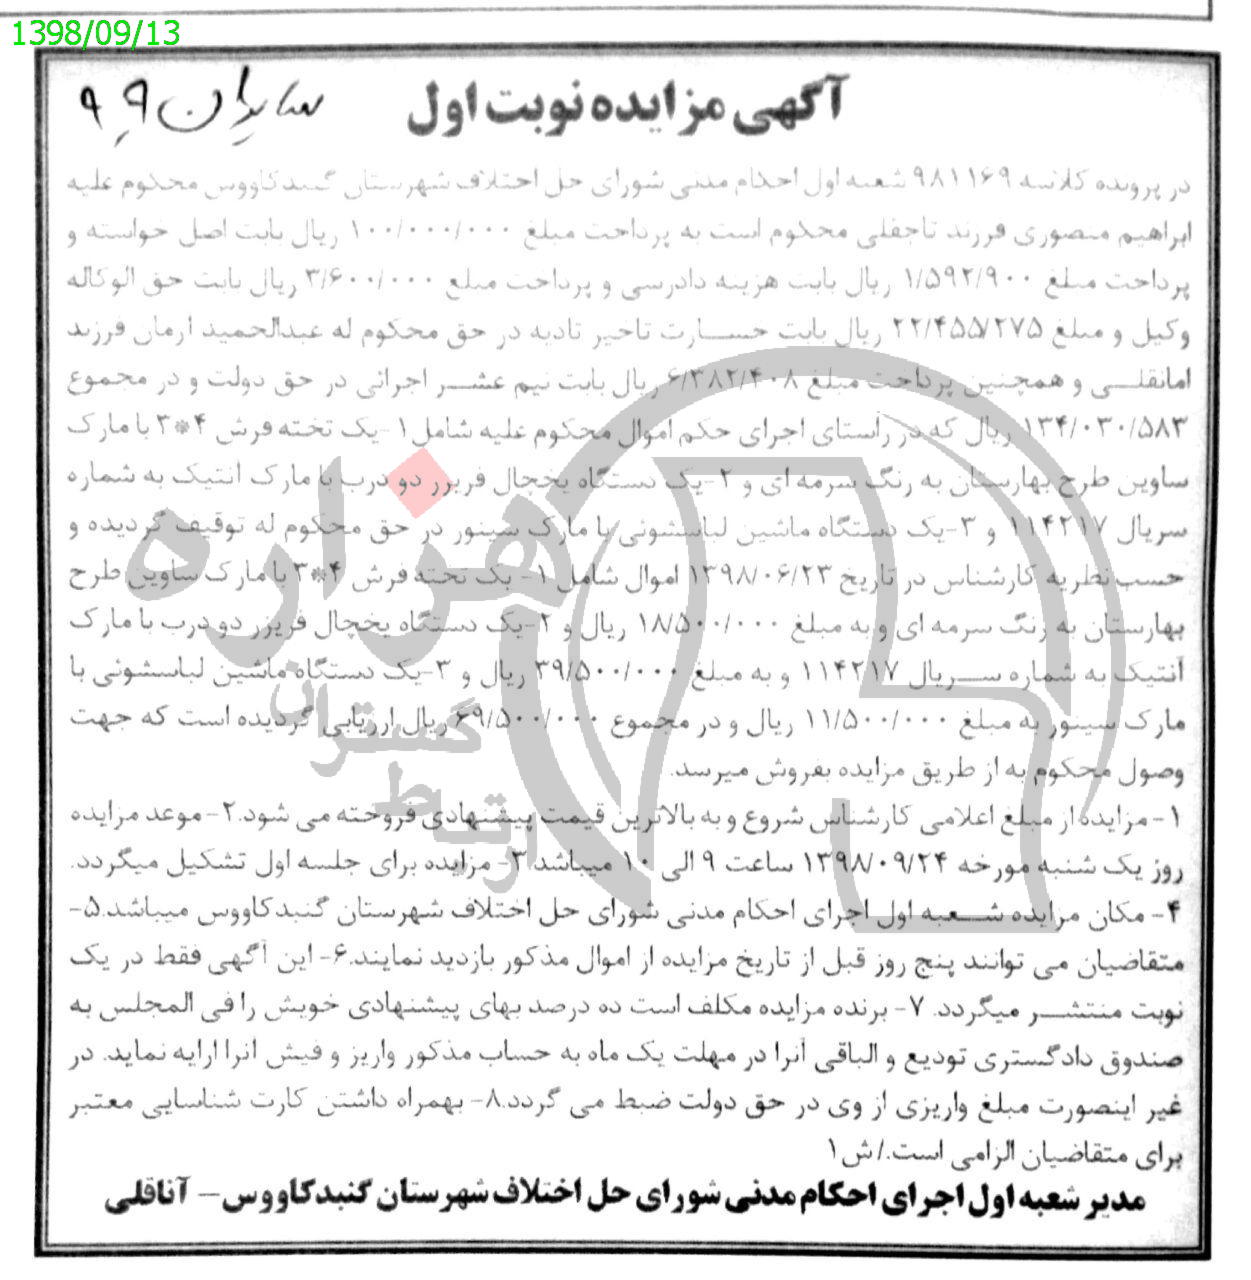 1398/09/13
آگهی مزایده نوبت اول
در پرونده کلاسه ۹۸۱۱۶۹ شعبه اول احکام مدنی شورای حل اختلاف شهرستان گنبدکاووس محکوم علیه
ابراهیم منصوری فرزند تاجقلی محکوم است به پرداخت مبلغ ۱۰۰/۰۰۰/۰۰۰ ریال بابت اصل خواسته و
پرداخت مبلغ ۱/۵۹۲/۹۰۰ ریال بابت هزینه دادرسی و پرداخت مبلغ ۳/۶۰۰/۰۰۰ ریال بابت حق الوکاله
وکیل و مبلغ ۲۲/۴۵۵/۲۷۵ ریال بابت خسارت تاخیر تادیه در حق محکوم له عبدالحمید آرمان فرزند
امانقلی و همچنین پرداخت مبلغ ۶/۳۸۲/۴۰۸ ریال بابت نیم عشر اجرائی در حق دولت و در مجموع
۱۳۴/۰۳۰/۵۸۳ ریال که در راستای اجرای حکم اموال محکوم علیه شامل ۱-یک تخته فرش ۴*۳ با مارک
ساوین طرح بهارستان به رنگ سرمه ای و ۲-یک دستگاه یخچال فریزر دو درب با مارک آنتیک به شماره
سریال ۱۱۴۲۱۷ و ۳-یک دستگاه ماشین لباسشوئی با مارک سینور در حق محکوم له توقیف گردیده و
حسب نظریه کارشناس در تاریخ ۱۳۹۸/۰۶/۲۳ اموال شامل ۱- یک تخته فرش ۴*۳ با مارک ساوین طرح
بهارستان به رنگ سرمه ای و به مبلغ ۱۸/۵۰۰/۰۰۰ ریال و ۲-یک دستگاه یخچال فریزر دو درب با مارک
آنتیک به شماره سریال ۱۱۴۲۱۷ و به مبلغ ۳۹/۵۰۰/۰۰۰ ریال و ۳-یک دستگاه ماشین لباسشوئی با
مارک سینور به مبلغ ۱۱/۵۰۰/۰۰۰ ریال و در مجموع ۶۹/۵۰۰/۰۰۰ ریال ارزیابی گردیده است که جهت
وصول محکوم به از طریق مزایده بفروش میرسد.
۱- مزایده از مبلغ اعلامی کارشناس شروع و به بالاترین قیمت پیشنهادی فروخته می شود.۲- موعد مزایده
روز یک شنبه مورخه ۱۳۹۸/۰۹/۲۴ ساعت ۹ الی ۱۰ میباشد.۳- مزایده برای جلسه اول تشکیل میگردد.
۴- مکان مزایده شعبه اول اجرای احکام مدنی شورای حل اختلاف شهرستان گنبدکاووس میباشد.۵-
متقاضیان می توانند پنج روز قبل از تاریخ مزایده از اموال مذکور بازدید نمایند.۶- این آگهی فقط در یک
نوبت منتشر میگردد. ۷- برنده مزایده مکلف است ده درصد بهای پیشنهادی خویش را فی المجلس به
صندوق دادگستری تودیع و الباقی آنرا در مهلت یک ماه به حساب مذکور واریز و فیش آنرا ارایه نماید. در
غیر اینصورت مبلغ واریزی از وی در حق دولت ضبط می گردد.۸- بهمراه داشتن کارت شناسایی معتبر
برای متقاضیان الزامی است./ش۱
مدیر شعبه اول اجرای احکام مدنی شورای حل اختلاف شهرستان گنبدکاووس- آناقلی
هزاره
گستران
ارتباط